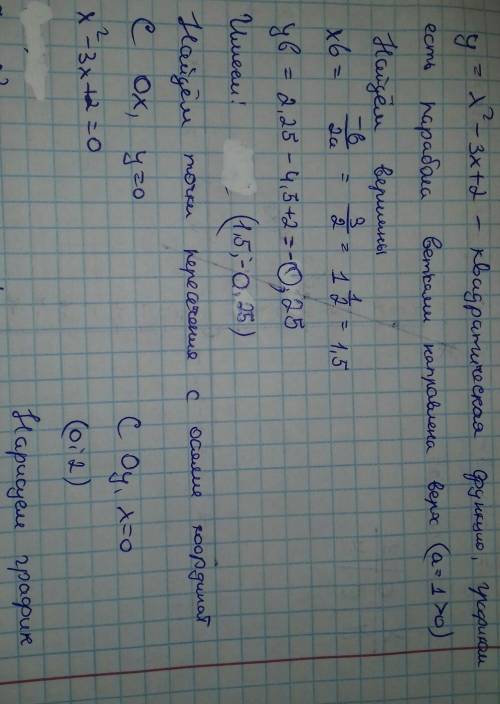 y = x² - 3x + 2 - квадратическая функцию, графиком
есть парабола ветками направлена верх (a = 1 > 0)
Найдём вершины
xв = -в/2a = 3/2 = 1 1/2 = 1,5
yв = 2,25 - 4,5 + 2 = -0,25
Имеем: (1,5; -0,25)
Найдём точки пересечения с осями координат
С Ox, y=0 С Oy, x=0
x² - 3x + 2 = 0 (0; 2)
Нарисуем график